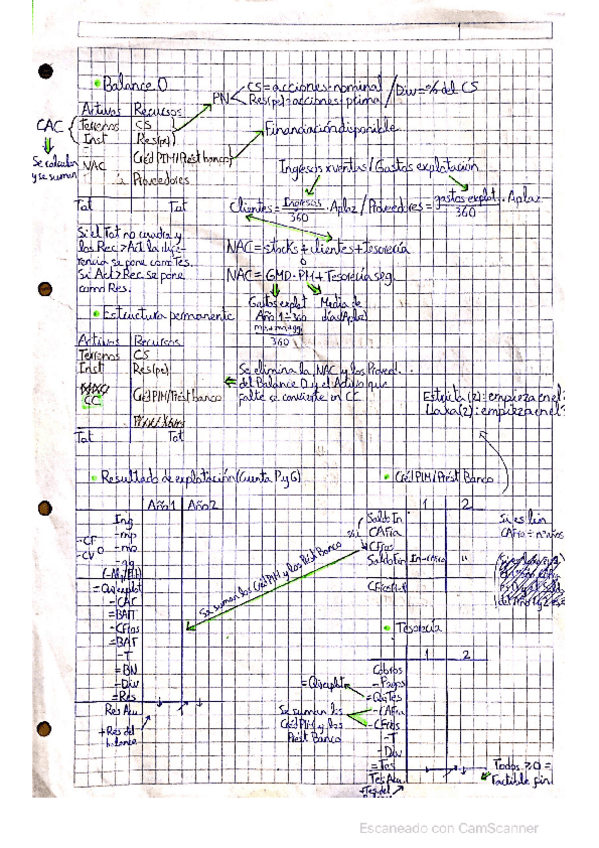 Balance 0
PN
CS = acciones·nominal
Res(pe) = acciones·prima
/ Div = % del CS
Activos Recursos
CAC
Terrenos CS
Inst Res(pe)
Se calculan
y se suman
NAC
Créd PIM/Prést banco
Proveedores
Tot Tot
Financiación disponible
Ingresos x ventas / Gastos explotación
Clientes = Ingresos/360 · Aplaz / Proveedores = gastos explot./360 · Aplaz
NAC = stocks + clientes + tesorería
o
NAC = GMD · PM + Tesorería seg.
Gastos explot
Año 1 ÷ 360
360
Media de
días (Aplaz)
Si el Tot no cuadra y
los Rec. > Act. la dife-
rencia se pone com Tes.
Si Act > Rec. se pone
como Res.
Estructura permanente
Activos Recursos
Terrenos CS
Inst Res(pe)
CC
Créd PIM/Prést banco
Tot Tot
Se elimina la NAC y los Proveed.
del Balance 0 y el Activo que
falte se convierte en CC
Estricta (2): empieza en el
Laxa (2): empieza en el
Resultado de explotación (Cuenta PyG)
Año 1 Año 2
Ing
-CF
-CV
- mp
- mo
- gg
= Qexplot
- CAC
= BAIT
- CFros
= BAT
- T
= BN
- Div
= Res
Res Acu
+ Res del
balance
Se suman los Créd PIM y los Prést Banco
Créd PIM/Prést Banco
1 2
Saldo In
CAFra
CFros
Saldo Fin In-CAFra "
Si es lin
CAFra ÷ nº años
Tesorería
1 2
Cobros
- Pagos
= Qexplot
= QgTes
- CAFra
- CFros
- T
- Div
= Tes
Tes Acu
+ Tes del
Se suman los
Créd PIM y los
Prést Banco
Todos ≥ 0 =
Factible fin
Escaneado con CamScanner